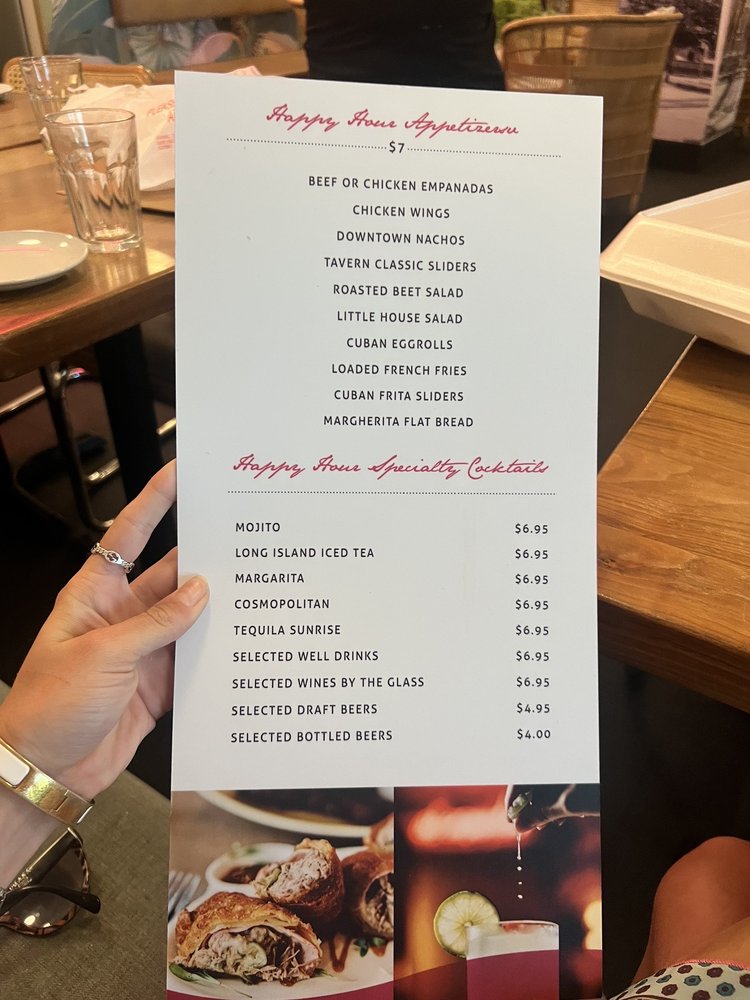 Happy Hour Appetizers
$7
BEEF OR CHICKEN EMPANADAS
CHICKEN WINGS
DOWNTOWN NACHOS
TAVERN CLASSIC SLIDERS
ROASTED BEET SALAD
LITTLE HOUSE SALAD
CUBAN EGGROLLS
LOADED FRENCH FRIES
CUBAN FRITA SLIDERS
MARGHERITA FLAT BREAD
Happy Hour Specialty Cocktails
MOJITO $6.95
LONG ISLAND ICED TEA $6.95
MARGARITA $6.95
COSMOPOLITAN $6.95
TEQUILA SUNRISE $6.95
SELECTED WELL DRINKS $6.95
SELECTED WINES BY THE GLASS $6.95
SELECTED DRAFT BEERS $4.95
SELECTED BOTTLED BEERS $4.00